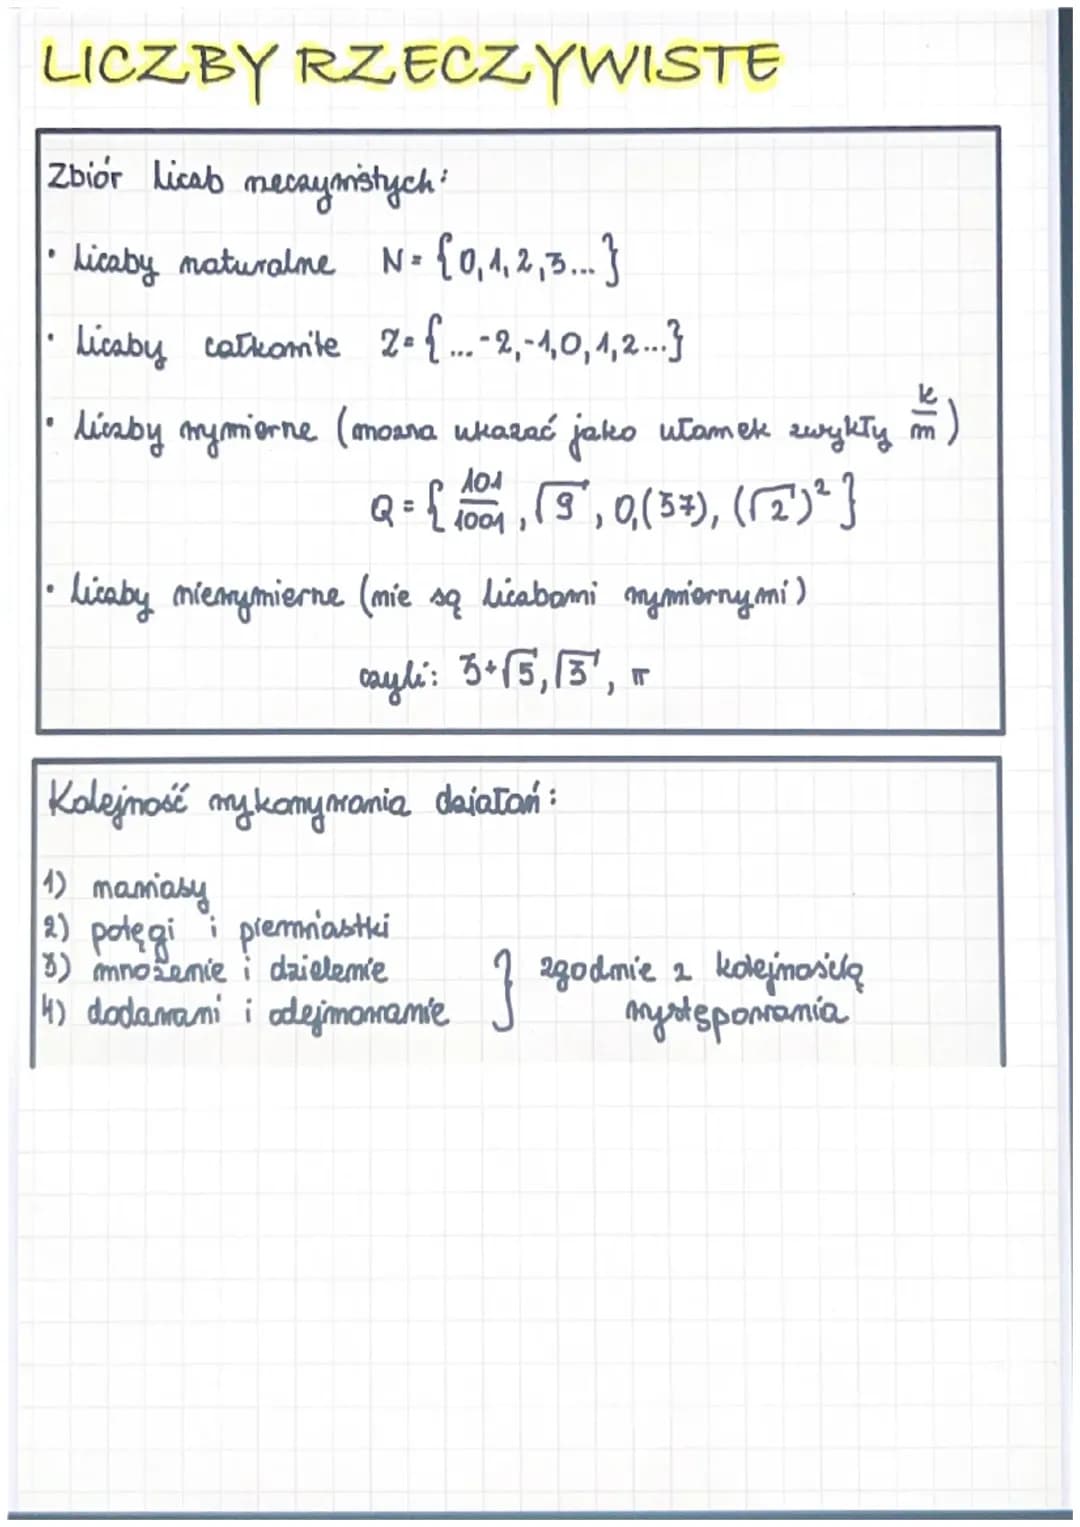 LICZBY RZECZYWISTE
Zbiór liczb rzeczywistych:
• liczby naturalne N = {0, 1, 2, 3...}
• liczby całkowite Z = {... -2, -1, 0, 1, 2...}
• liczby wymierne (można ukazać jako ułamek zwykły k/m)
Q = {101/1001, √9, 0,(37), (√2)²}
• liczby niewymierne (nie są liczbami wymiernymi)
czyli: 3+√5, √3, π
Kolejność wykonywania działań:
1) nawiasy
2) potęgi i pierwiastki
3) mnożenie i dzielenie
4) dodawani i odejmowanie
} zgodnie z kolejnością
występowania